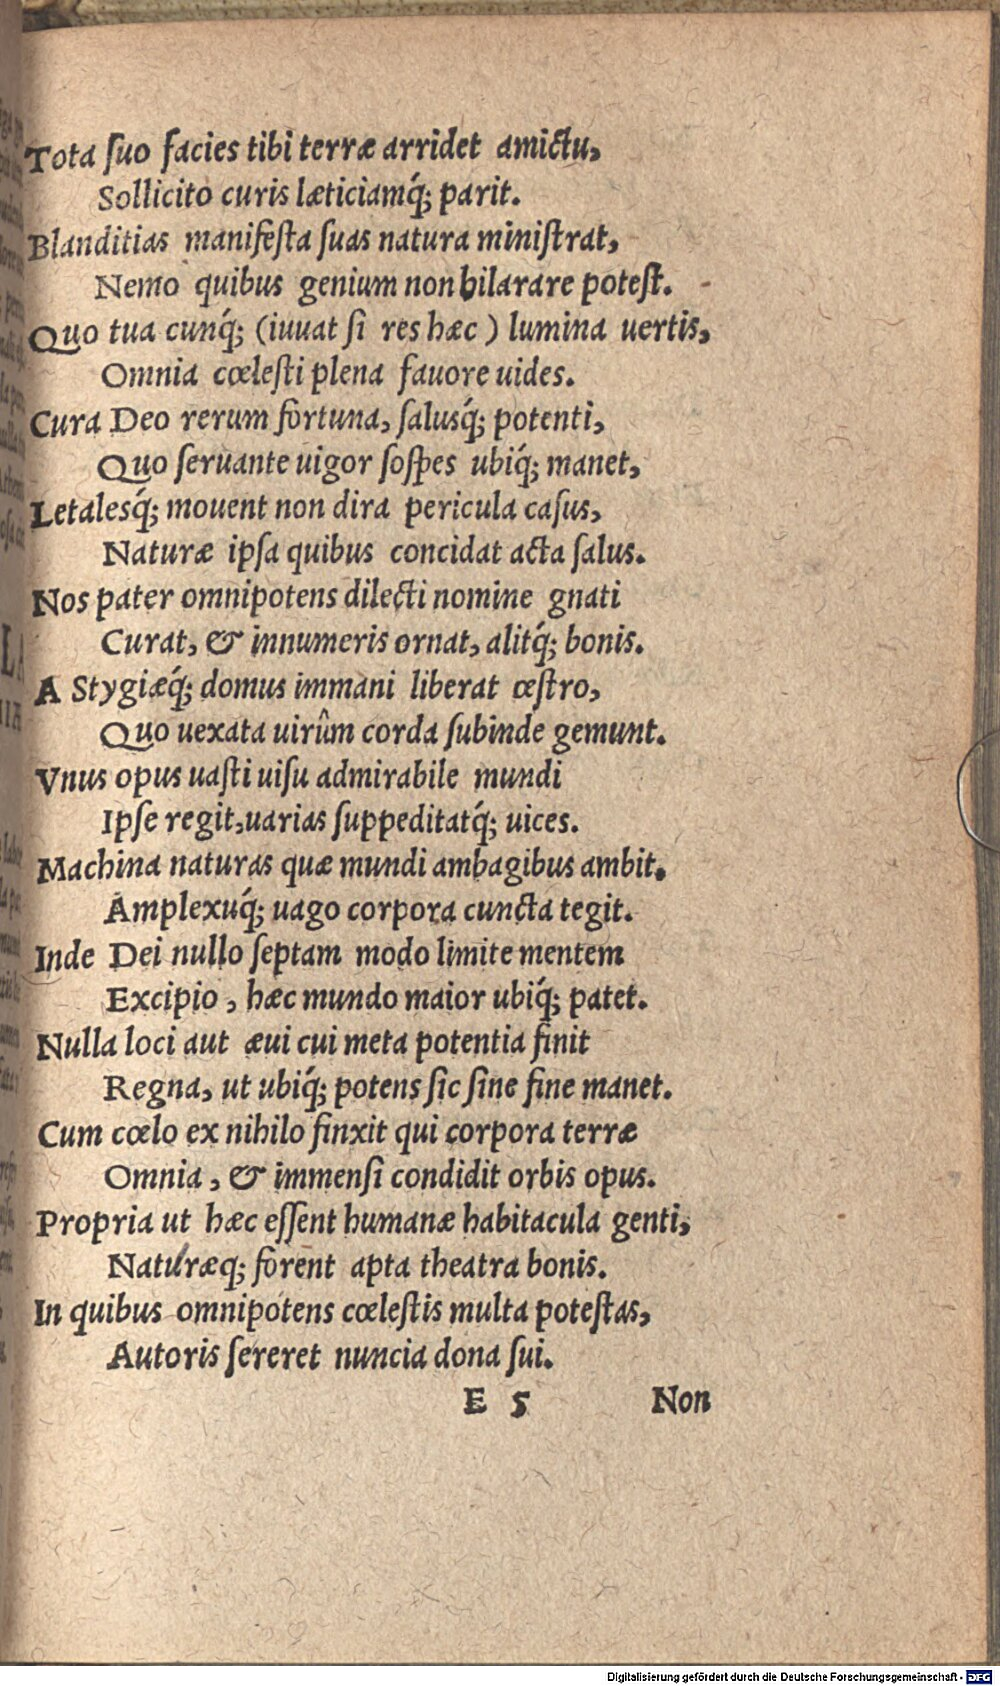 Tota ſuo facies tibi terræ arridet amictu,
Sollicito curis læticiamq́; parit.
Blanditias manifeſta ſuas natura miniſtrat,
Nemo quibus genium non hilarare poteſt.
Quo tua cunq́; (iuuat ſi res hæc) lumina uertis,
Omnia cœleſti plena fauore uides.
Cura Deo rerum fortuna, ſalusq́; potenti,
Quo ſeruante uigor ſoſpes ubiq́; manet,
Letalesq́; mouent non dira pericula caſus,
Naturæ ipſa quibus concidat acta ſalus.
Nos pater omnipotens dilecti nomine gnati
Curat, & innumeris ornat, alitq́; bonis.
A Stygiæq́; domus immani liberat œſtro,
Quo uexata uirûm corda ſubinde gemunt.
Vnus opus uaſti uiſu admirabile mundi
Ipſe regit,uarias ſuppeditatq́; uices.
Machina naturas quæ mundi ambagibus ambit.
Amplexuq́; uago corpora cuncta tegit.
Inde Dei nullo ſeptam modo limite mentem
Excipio , hæc mundo maior ubiq́; patet.
Nulla loci aut æui cui meta potentia finit
Regna, ut ubiq́; potens ſic ſine fine manet.
Cum cœlo ex nihilo finxit qui corpora terræ
Omnia , & immenſi condidit orbis opus.
Propria ut hæc eſſent humanæ habitacula genti,
Naturæq; forent apta theatra bonis.
In quibus omnipotens cœleſtis multa poteſtas,
Autoris ſereret nuncia dona ſui.
E 5 Non
Digitalisierung gefördert durch die Deutsche Forschungsgemeinschaft - DFG